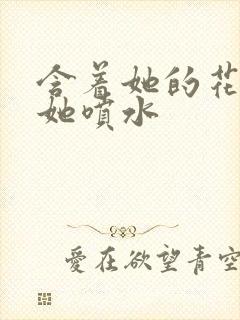 含着她的花
她喷水
爱在欲望青空